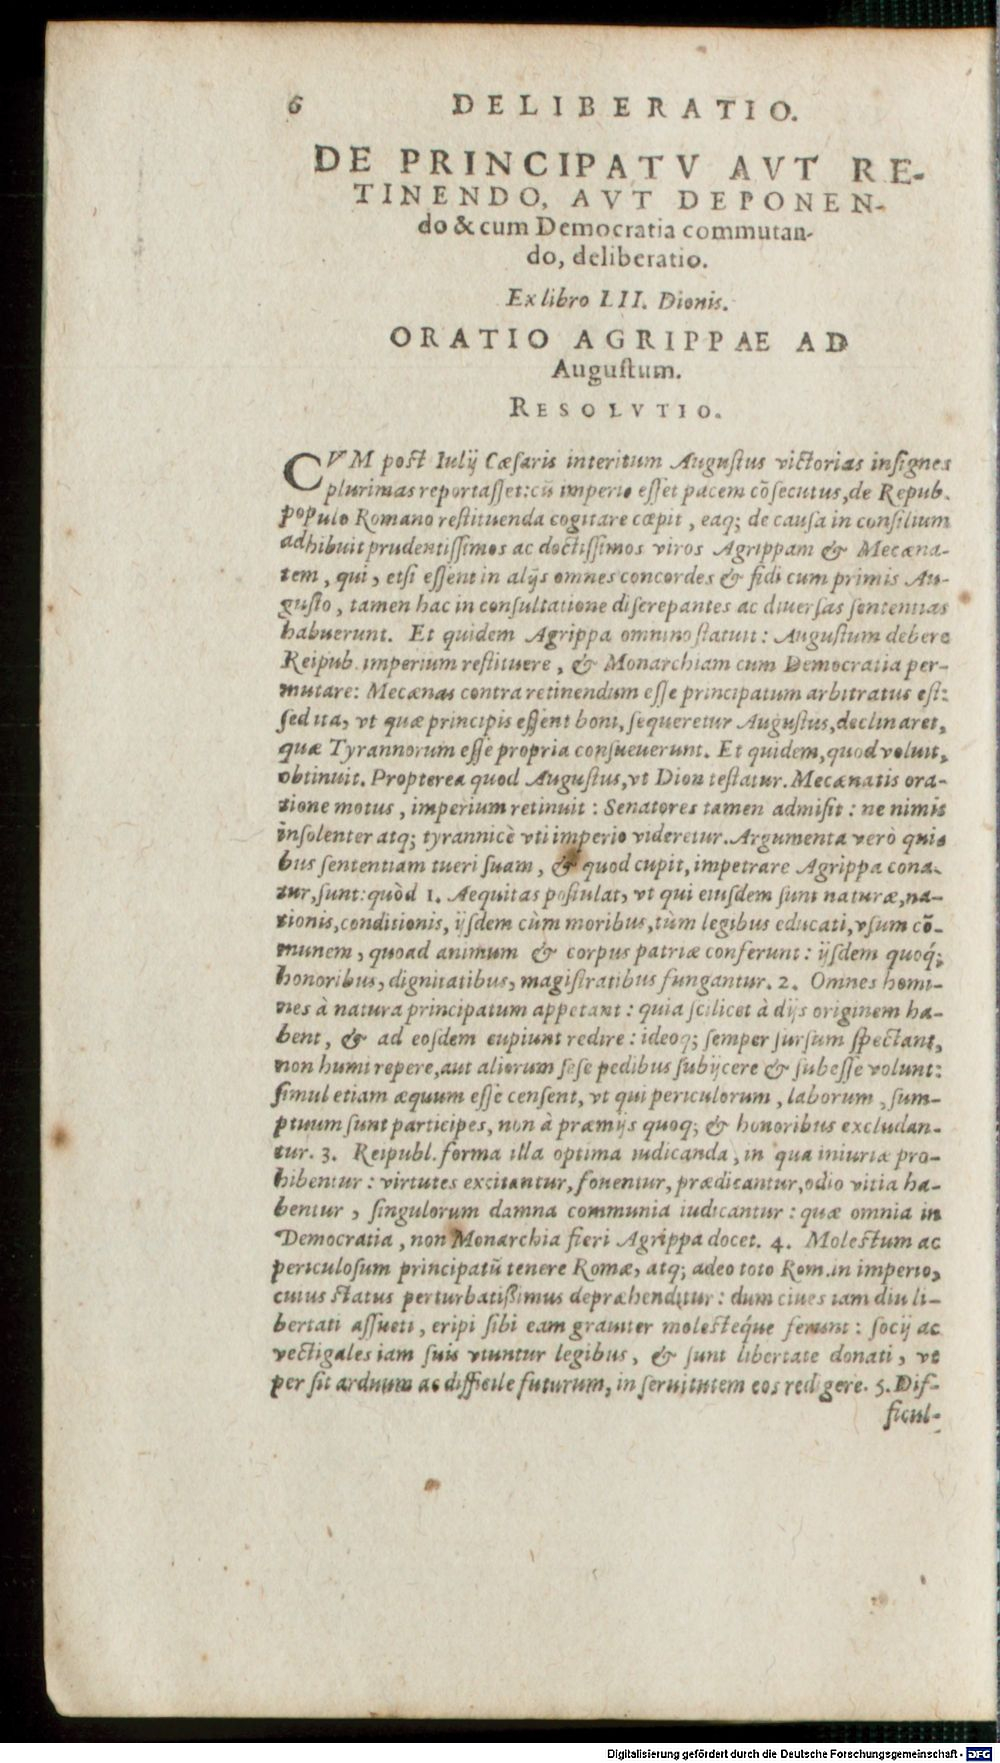 6 DELIBERATIO.
DE PRINCIPATV AVT RE-
TINENDO, AVT DEPONEN-
do & cum Democratia commutan-
do, deliberatio.
Ex libro LII. Dionis.
ORATIO AGRIPPAE AD
Auguſtum.
RESOLVTIO.
CVM poſt Iulij Cæſaris interitum Auguſtus victorias inſignes
plurimas reportaſſet: cũ imperio eſſet pacem cõſecutus, de Repub.
populo Romano reſtituenda cogitare cœpit, eaq; de cauſa in conſilium
adhibuit prudentiſſimos ac doctiſſimos viros Agrippam & Mecæna-
tem, qui, etſi eſſent in alijs omnes concordes & fidi cum primis Au-
guſto, tamen hac in conſultatione diſcrepantes ac diuerſas ſententias
habuerunt. Et quidem Agrippa omnino ſtatuit: Auguſtum debere
Reipub. imperium reſtituere, & Monarchiam cum Democratia per-
mutare: Mecænas contra retinendum eſſe principatum arbitratus eſt:
ſed ita, vt quæ principis eſſent boni, ſequeretur Auguſtus, declinaret,
quæ Tyrannorum eſſe propria conſueuerunt. Et quidem, quod voluit,
obtinuit. Propterea quod Auguſtus, vt Dion teſtatur. Mecænatis ora-
tione motus, imperium retinuit: Senatores tamen admiſit: ne nimis
inſolenter atq; tyrannicè vti imperio videretur. Argumenta verò qui-
bus ſententiam tueri ſuam, & quod cupit, impetrare Agrippa cona-
tur, ſunt: quòd 1. Aequitas poſtulat, vt qui eiuſdem ſunt naturæ, na-
tionis, conditionis, ijſdem cùm moribus, tùm legibus educati, vſum cõ-
munem, quoad animum & corpus patriæ conferunt: ijſdem quoq́;
honoribus, dignitatibus, magiſtratibus fungantur. 2. Omnes homi-
nes à natura principatum appetant: quia ſcilicet à dijs originem ha-
bent, & ad eoſdem cupiunt redire: ideoq; ſemper ſurſum ſpectant,
non humi repere, aut aliorum ſeſe pedibus ſubijcere & ſubeſſe volunt:
ſimul etiam æquum eſſe cenſent, vt qui periculorum, laborum, ſum-
ptuum ſunt participes, non à præmijs quoq; & honoribus excludan-
tur. 3. Reipubl. forma illa optima iudicanda, in qua iniuriæ pro-
hibentur: virtutes excitantur, fouentur, prædicantur, odio vitia ha-
bentur, ſingulorum damna communia iudicantur: quæ omnia in
Democratia, non Monarchia fieri Agrippa docet. 4. Moleſtum ac
periculoſum principatũ tenere Romæ, atq; adeo toto Rom. in imperio,
cuius ſtatus perturbatiſſimus depræhenditur: dum ciues iam diu li-
bertati aſſueti, eripi ſibi eam grauiter moleſtéque ferunt: ſocij ac
vectigales iam ſuis vtuntur legibus, & ſunt libertate donati, vt
per ſit arduum ac difficile futurum, in ſeruitutem eos redigere. 5. Dif-
ficul-
Digitalisierung gefördert durch die Deutsche Forschungsgemeinschaft - DFG